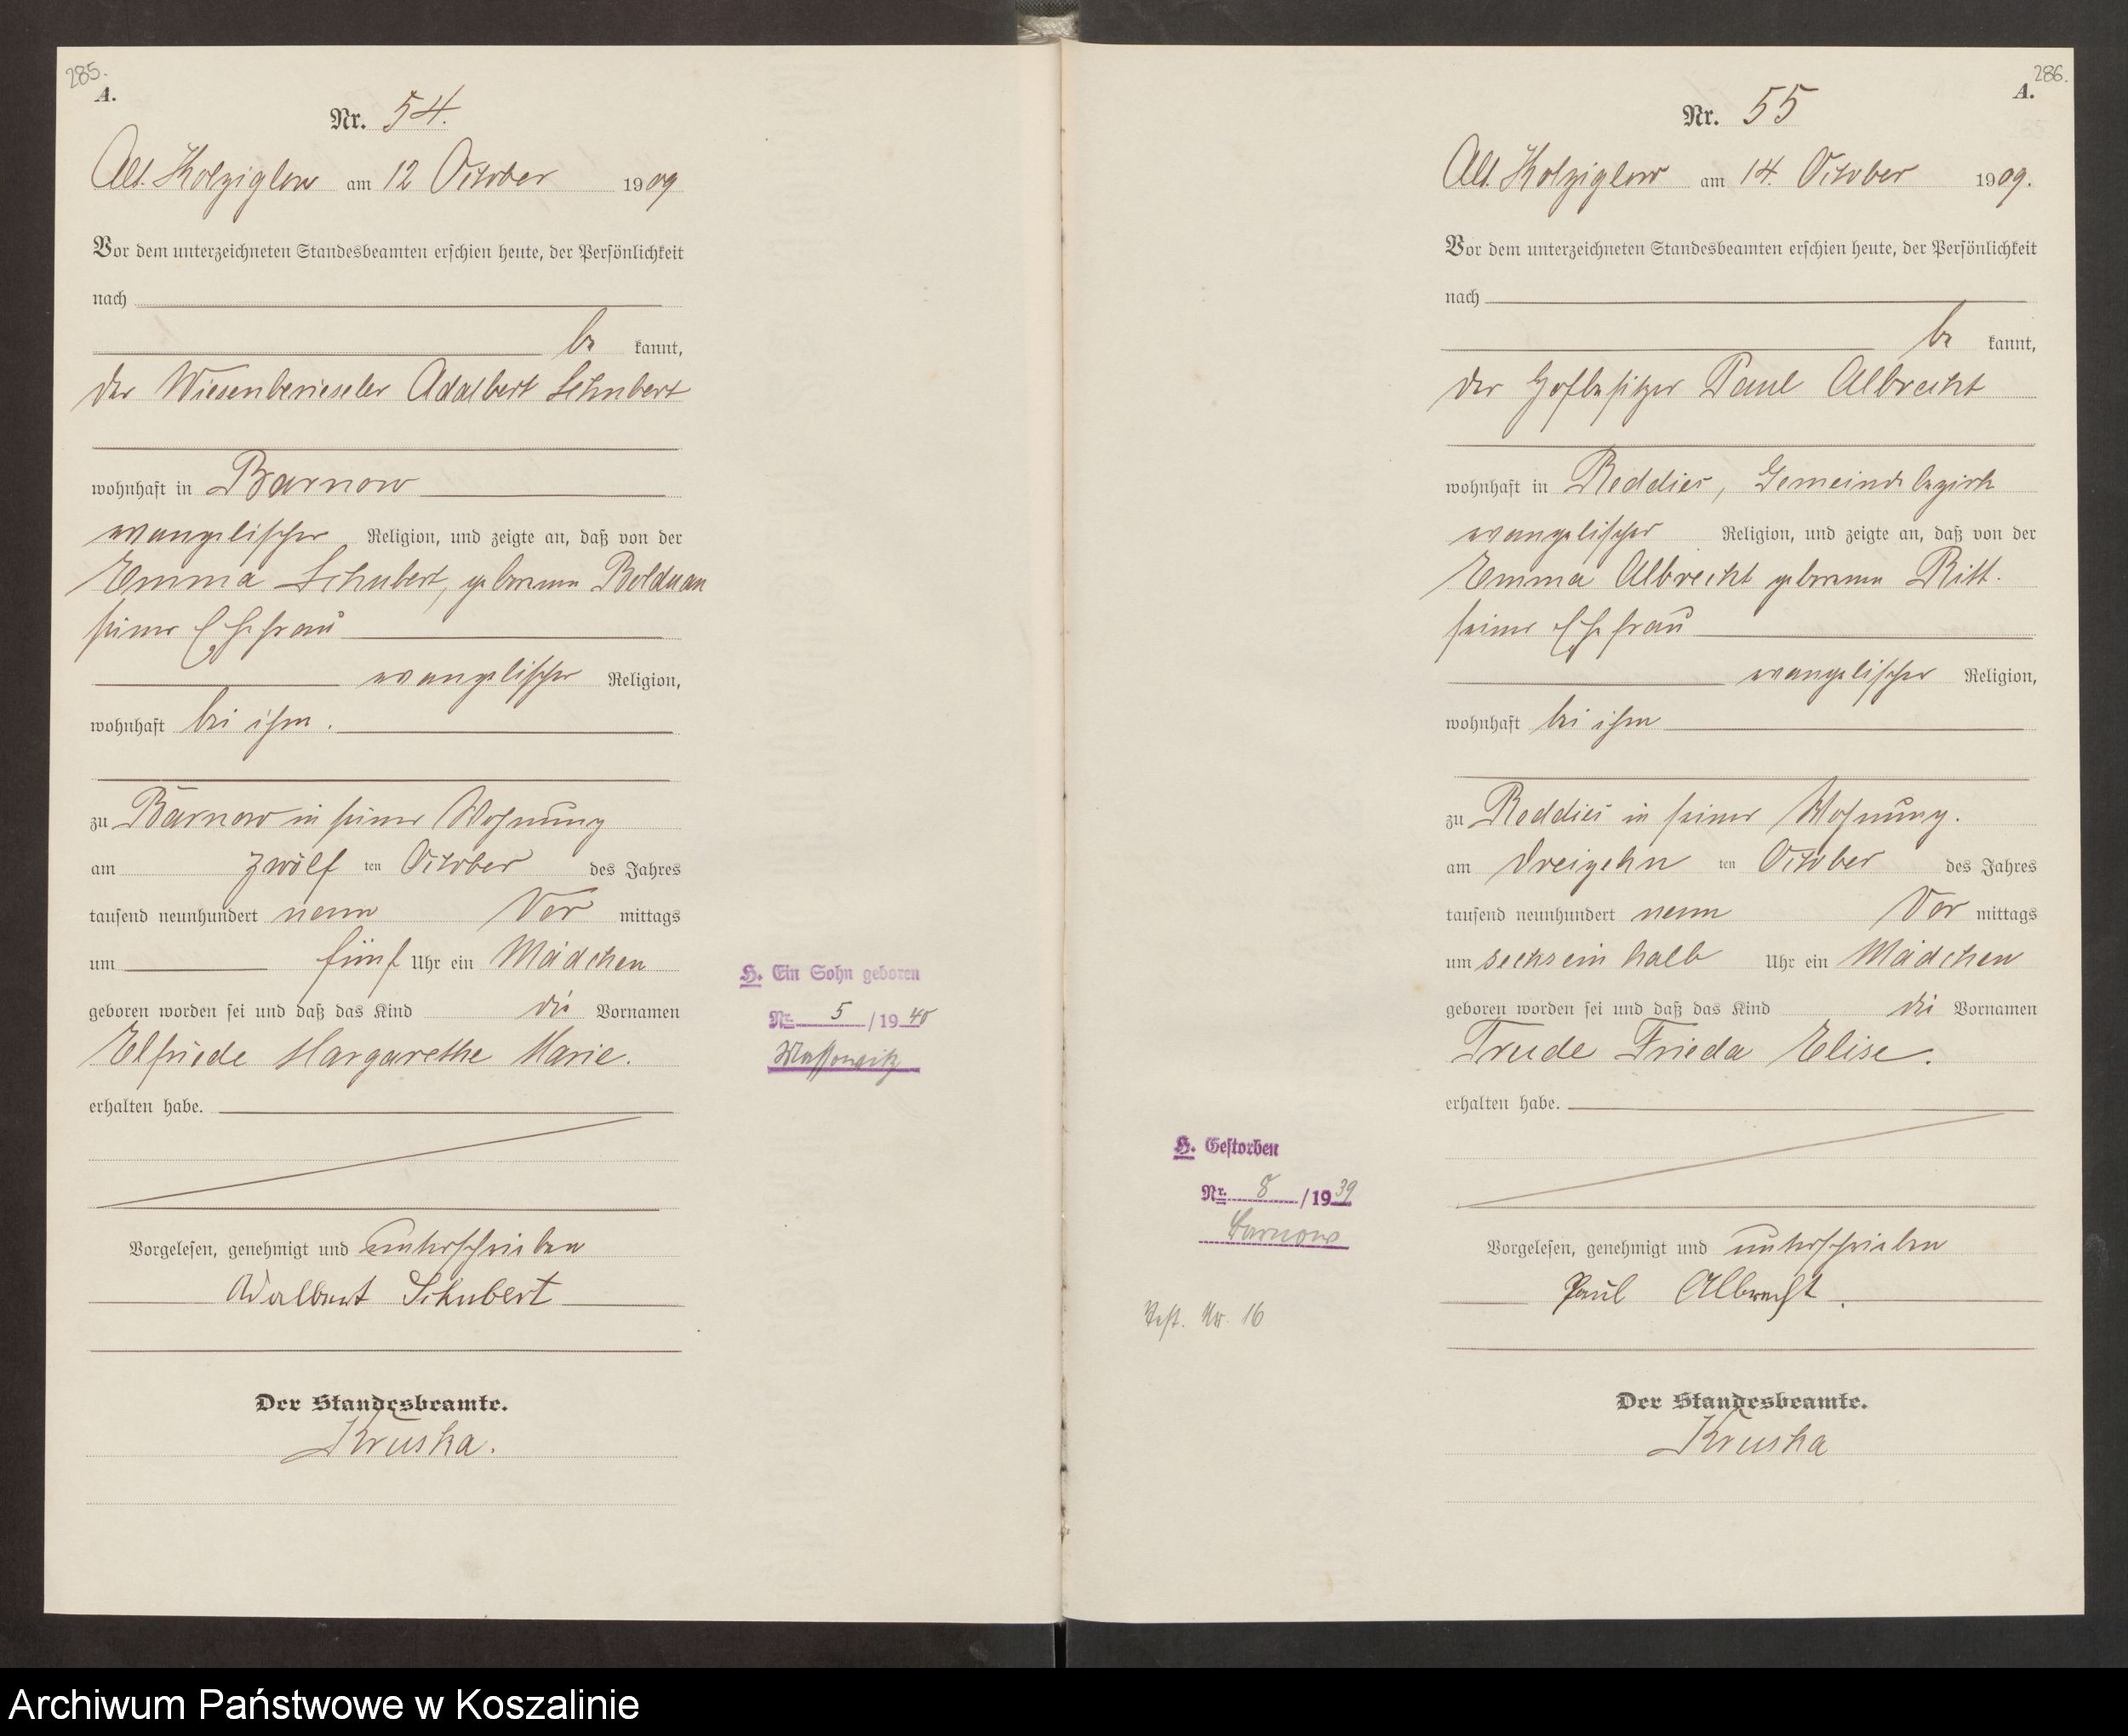 285.
A.
Nr. 54.
Alt. Kolziglow am 12 October 1909
Vor dem unterzeichneten Standesbeamten erschien heute, der Persönlichkeit
nach
be kannt,
der Wiesenberieseler Adalbert Schubert
wohnhaft in Barnow
evangelischer Religion, und zeigte an, daß von der
Emma Schubert, geborenen Bolduan
seiner Ehefrau
evangelischer Religion,
wohnhaft bei ihm.
zu Barnow in seiner Wohnung
am zwölf ten October des Jahres
tausend neunhundert neun Vor mittags
um fünf Uhr ein Mädchen
geboren worden sei und daß das Kind die Vornamen
Elfriede Margarethe Marie.
erhalten habe.
Vorgelesen, genehmigt und unterschrieben
Adalbert Schubert
Der Standesbeamte.
Kruska.
H. Ein Sohn geboren
Nr. 5 /1940
Massowitz
286.
A.
Nr. 55
Alt. Kolziglow am 14. October 1909.
Vor dem unterzeichneten Standesbeamten erschien heute, der Persönlichkeit
nach
be kannt,
der Hofbesitzer Paul Albrecht
wohnhaft in Reddies, Gemeindebezirk
evangelischer Religion, und zeigte an, daß von der
Emma Albrecht geborenen Ritt.
seiner Ehefrau
evangelischer Religion,
wohnhaft bei ihm
zu Reddies in seiner Wohnung.
am dreizehn ten October des Jahres
tausend neunhundert neun Vor mittags
um sechs ein halb Uhr ein Mädchen
geboren worden sei und daß das Kind die Vornamen
Trude Frieda Elise.
erhalten habe.
Vorgelesen, genehmigt und unterschrieben
Paul Albrecht.
Der Standesbeamte.
Kruska
H. Gestorben
Nr. 8 /1939
Barnow
Nr. 16
Archiwum Państwowe w Koszalinie